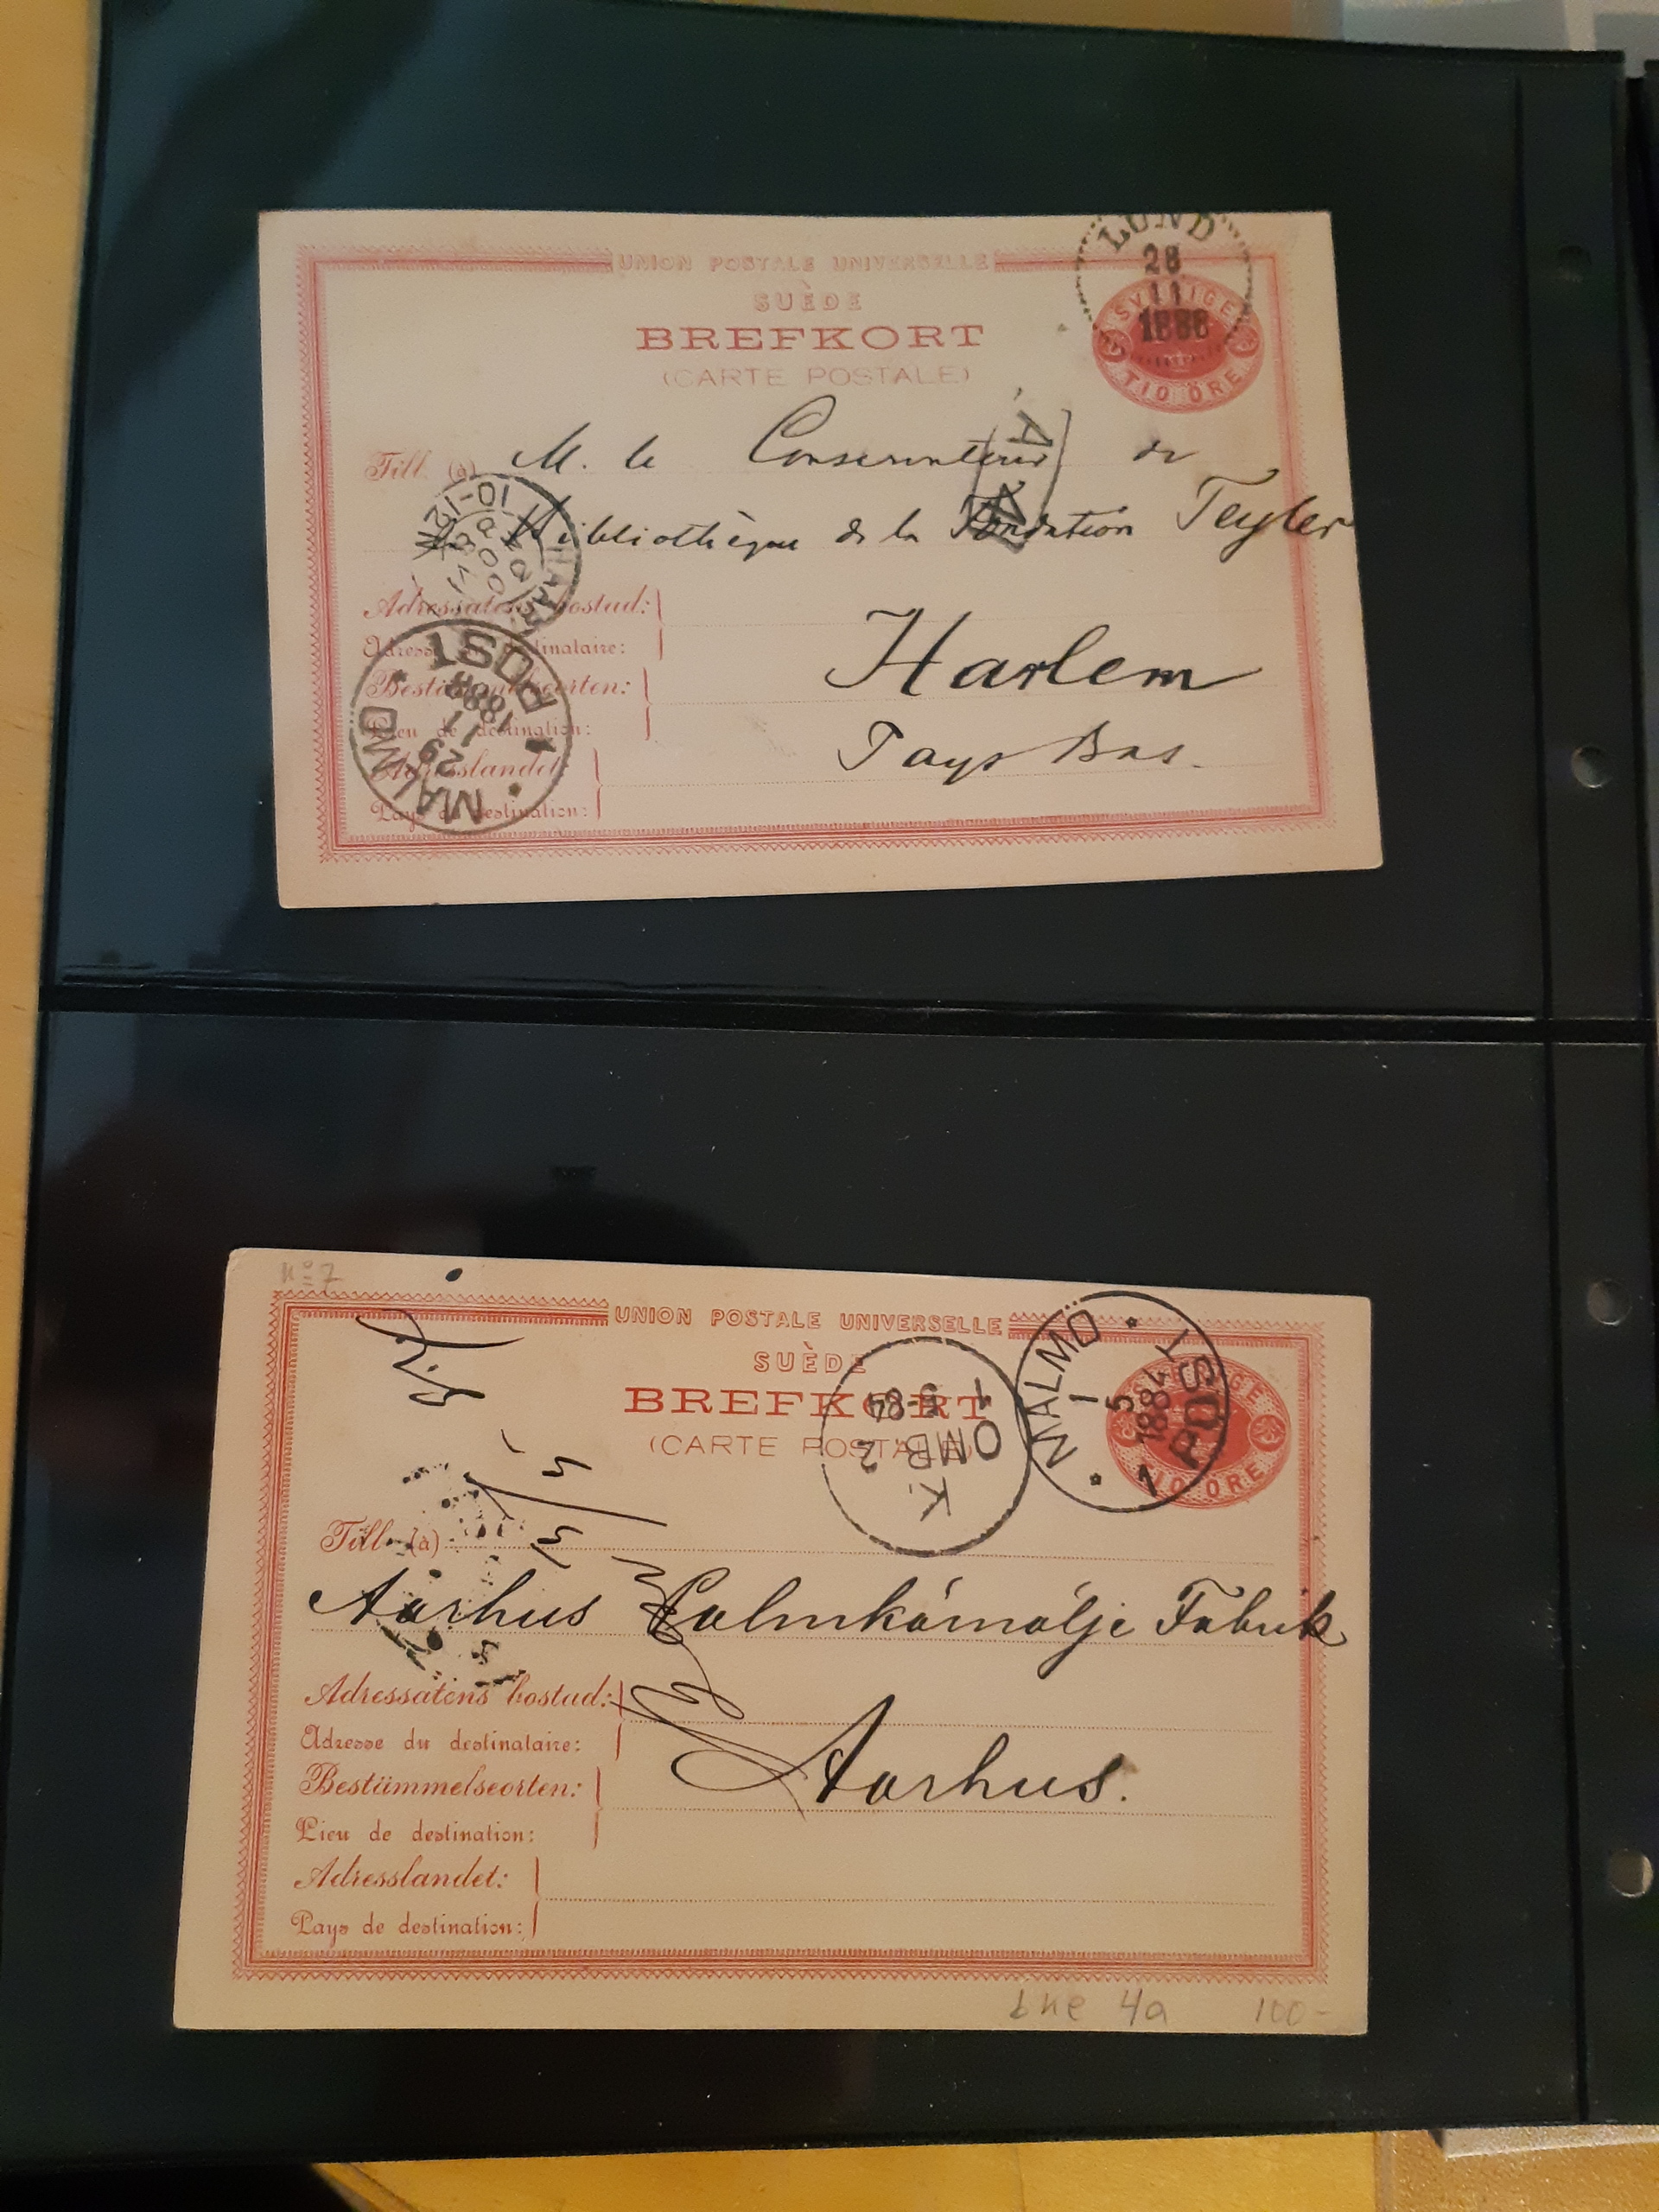 UNION POSTALE UNIVERSELLE
SUÈDE
BREFKORT
(CARTE POSTALE)
LUND
28
11
1888
SVERIGE
TIO ÖRE
Till (à) M. le Conservateur de
la Bibliothèque de la Fondation Teyler
10-12
Adressatens bostad:
Adresse du destinataire:
Harlem
Bestämmelseorten:
Lieu de destination:
Pays Bas.
Adresslandet
Pays de destination:
MALMÖ
29
11
1888
POST
No 7
UNION POSTALE UNIVERSELLE
SUÈDE
BREFKORT
(CARTE POSTALE)
MALMÖ
1
5
1884
1 POST
TIO ÖRE
K.
OMB. 2
5-84
Till (à)
Aarhus Palmkärnolje Fabrik
Adressatens bostad:
Adresse du destinataire:
Aarhus.
Bestämmelseorten:
Lieu de destination:
Adresslandet:
Pays de destination:
bKe 4a 100-